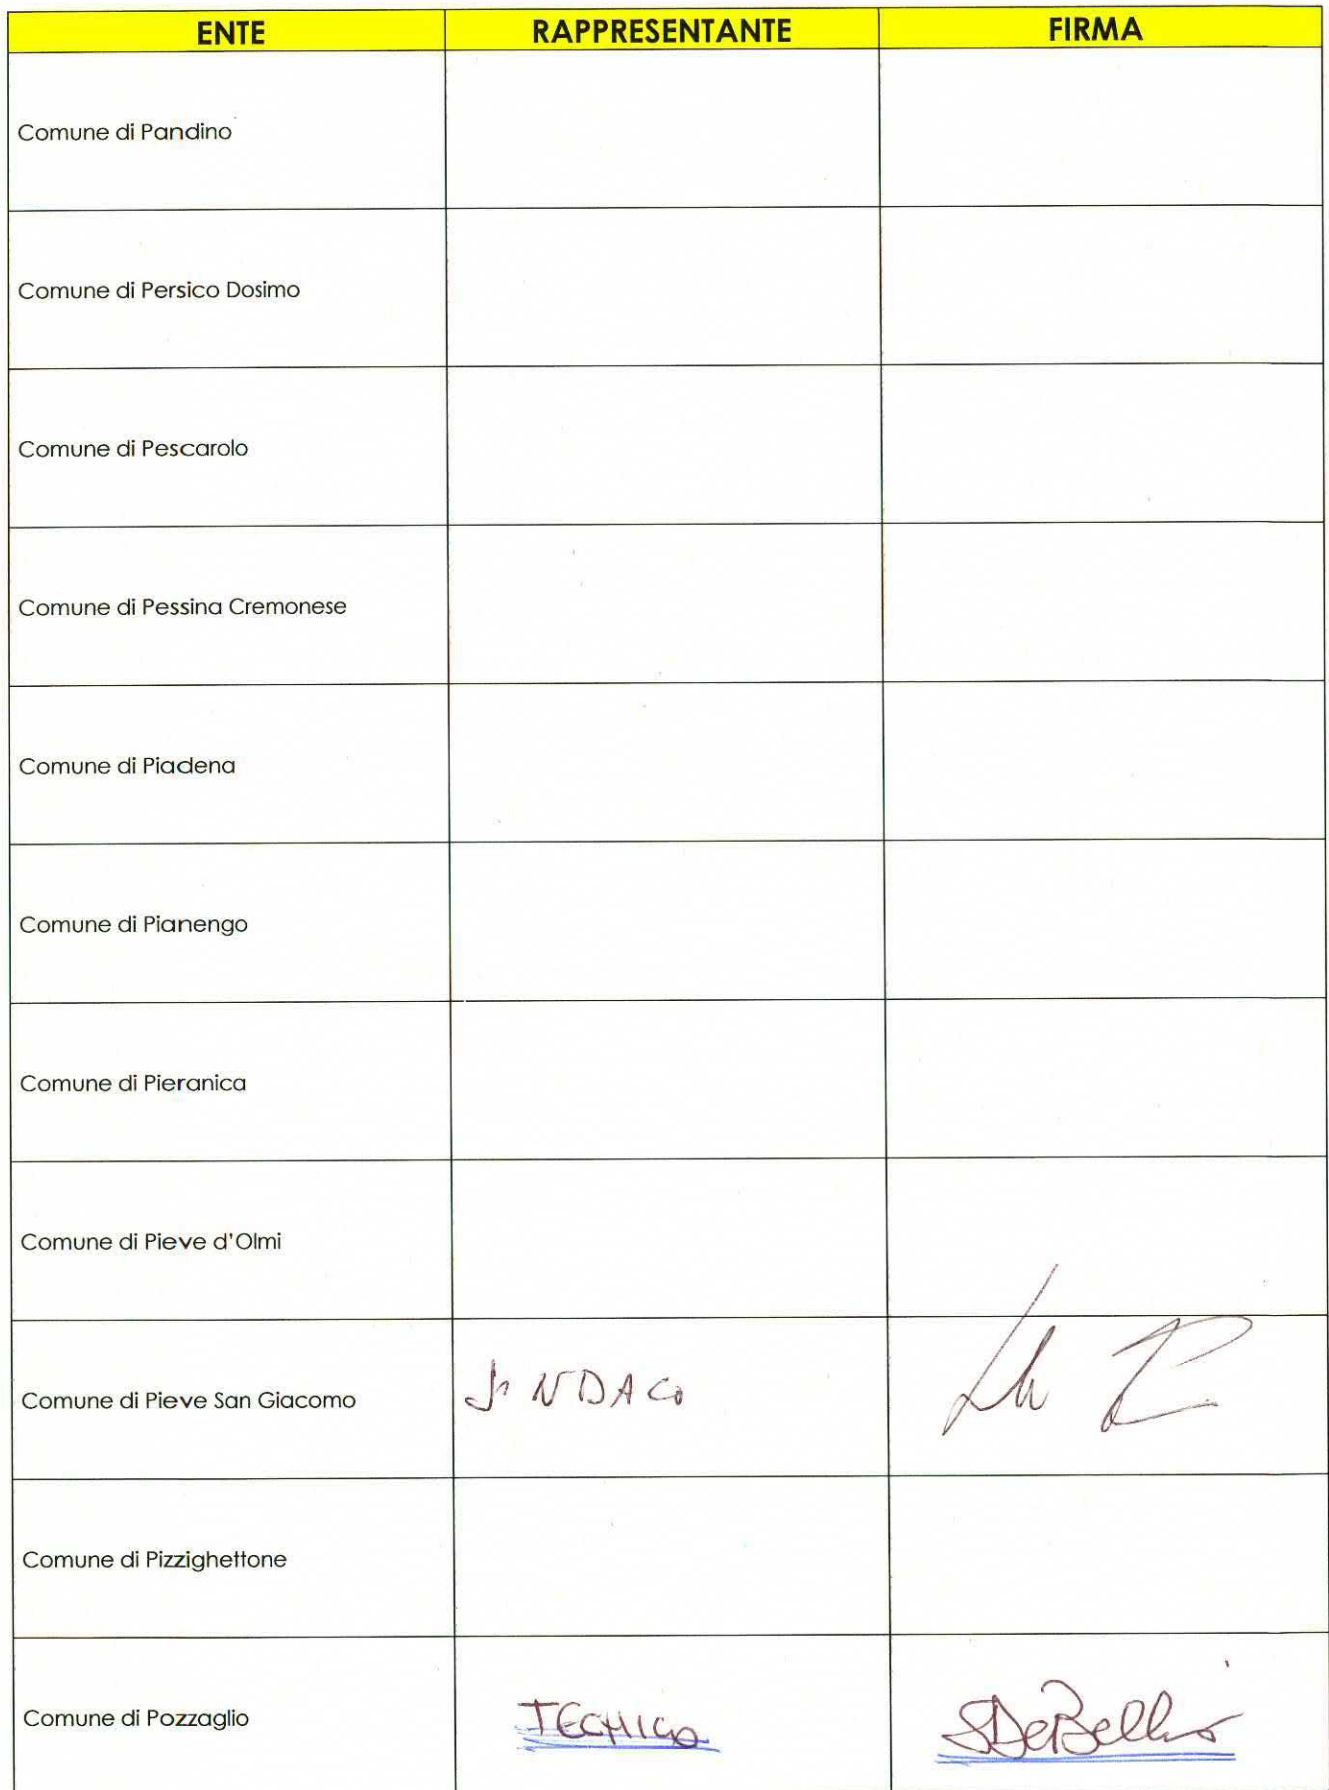 ENTE RAPPRESENTANTE FIRMA
Comune di Pandino
Comune di Persico Dosimo
Comune di Pescarolo
Comune di Pessina Cremonese
Comune di Piadena
Comune di Pianengo
Comune di Pieranica
Comune di Pieve d'Olmi
Comune di Pieve San Giacomo SINDACO
Comune di Pizzighettone
Comune di Pozzaglio TECNICO